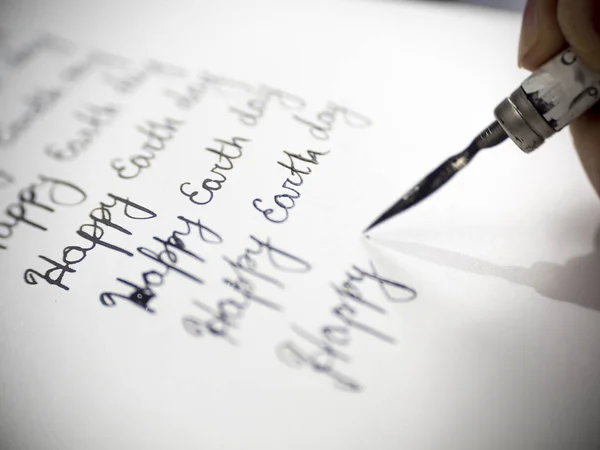 day
Earth day
appy Earth day
Happy Earth day
Happy Earth day
Happy Earth day
Happy